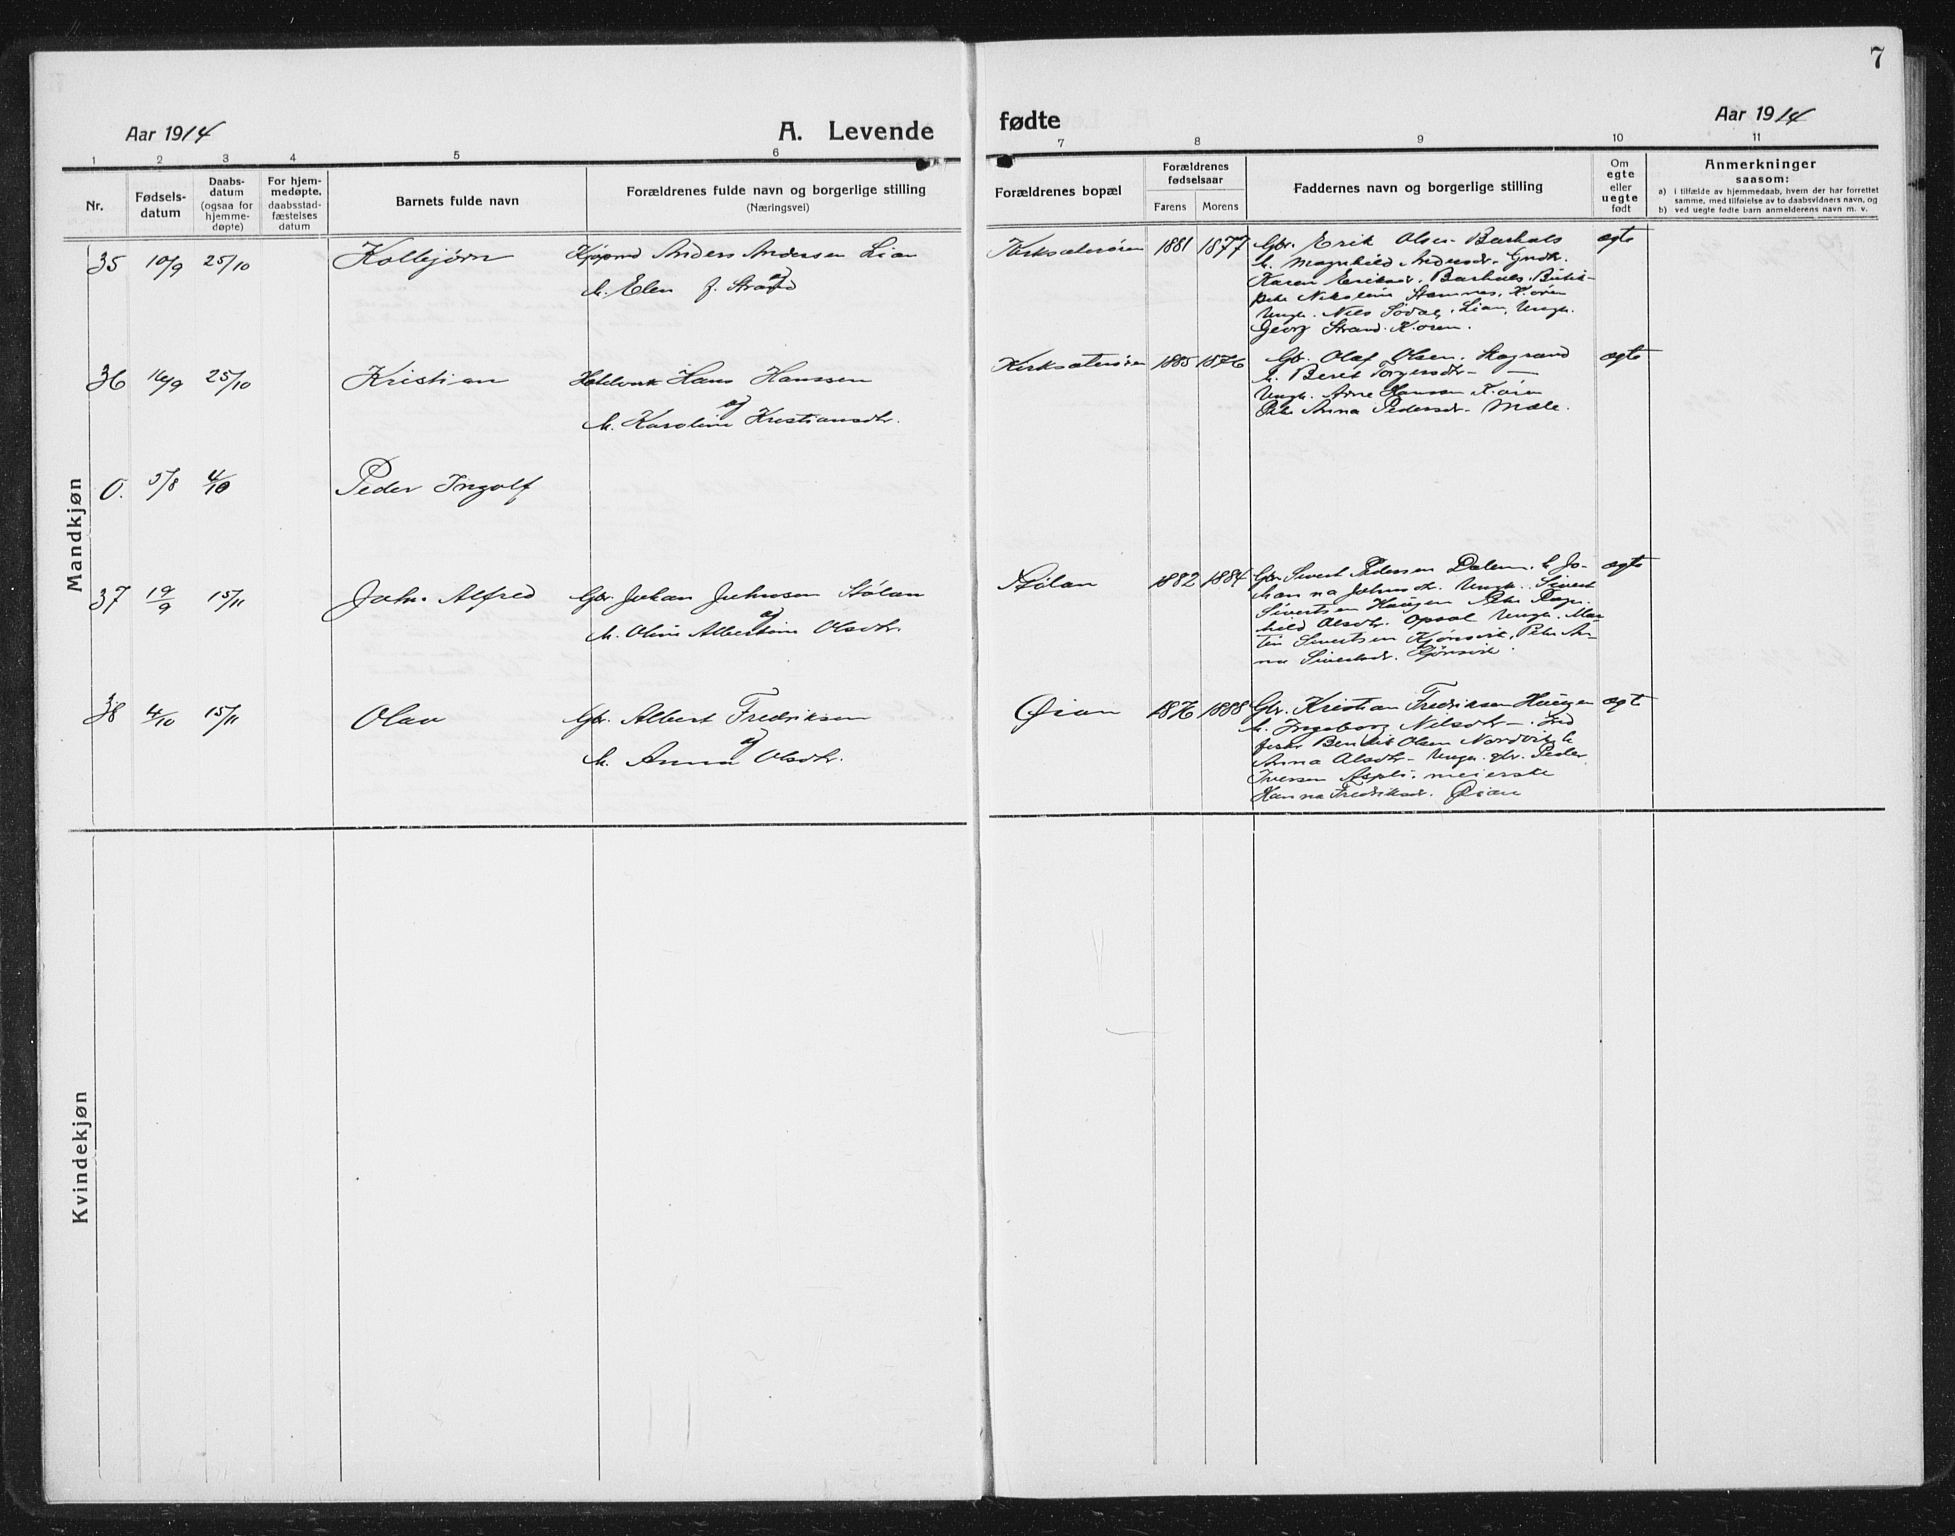 7
Aar 1914
A. Levende
fødte
Aar 1914
1 2 3 4 5 6 7 8 9 10 11
Nr.
Fødsels-
datum
Daabs-
datum
(ogsaa for
hjemme-
døpte)
For hjem-
medøpte,
daabsstad-
fæstelses
datum
Barnets fulde navn
Forældrenes fulde navn og borgerlige stilling
(Næringsvei)
Forældrenes bopæl
Forældrenes
fødselsaar
Farens Morens
Faddernes navn og borgerlige stilling
Om
egte
eller
uegte
født
Anmerkninger
saasom:
a) i tilfælde av hjemmedaab, hvem der har forrettet
samme, med tilføielse av to daabsvidners navn, og
b) ved uegte fødte barn anmelderens navn m. v.
Mandkjøn
35 10/9 25/10 Kolbjørn Kjøpmd Anders Andersen Lian
og
M. Elen f. Strand
Kirksæterøren 1881 1877 Gbr. Erik Olsen Barhals ægte
M. Magnhild Andersdr.
Karen Eriksdr. Barhals.
Nikoline Stamnes, K.øren
Ungk. Nils Sødal, Lian, Ungk.
Georg Strand K.øren.
36 16/9 25/10 Kristian Hans Hanssen
og
M. Karoline Kristiansdtr.
Kirksæterøren 1885 1876 Gbr. Olaf Olsen ægte
M. Berit Torgersdtr. —
Ungk. Arne Hansen K.øren
Pike Anna Pedersdr. Mæle.
0. 5/8 4/10 Peder Ingolf
37 19/9 15/11 John Alfred Gbr. Johan Johnsen Stølan
og
M. Oline Albertine Olsdtr.
Stølan 1882 1884 Gbr. Sivert Pedersen Dalem. k. Jo- ægte
hanna Johnsdt. Ungk. Sivert
Sivertsen Haugen Pike Ragn-
hild Olsdtr. Opsal Ungk. Mar-
tin Sivertsen Kjønsvik, Pike An-
na Sivertsdr. Kjønsvik.
38 4/10 15/11 Olav Gbr. Albert Fredriksen
og
M. Anna Olsdtr.
Øian 1876 1888 Gbr. Kristian Fredriksen Haugen ægt
M. Ingeborg Nilsdtr —. Ind
Bendik Olsen Nordvik k
Anna Olsdtr — Ungk. gbr. Peder
Iversen Aspli, meierske
Hanna Fredriksdr. Øian
Kvindekjøn